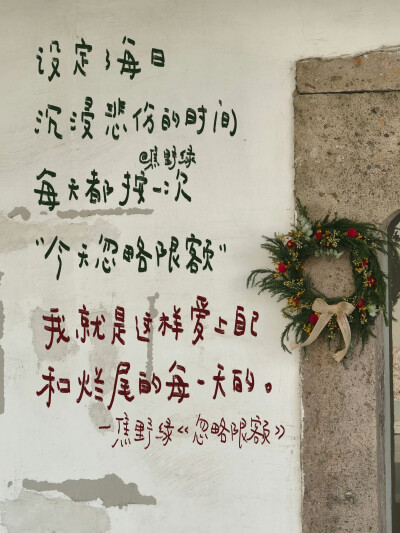 设定了每日
沉浸悲伤的时间
@焦野绿
每天都按一次
“今天忽略限额”
我就是这样爱上自己
和烂尾的每一天的。
—焦野绿《忽略限额》